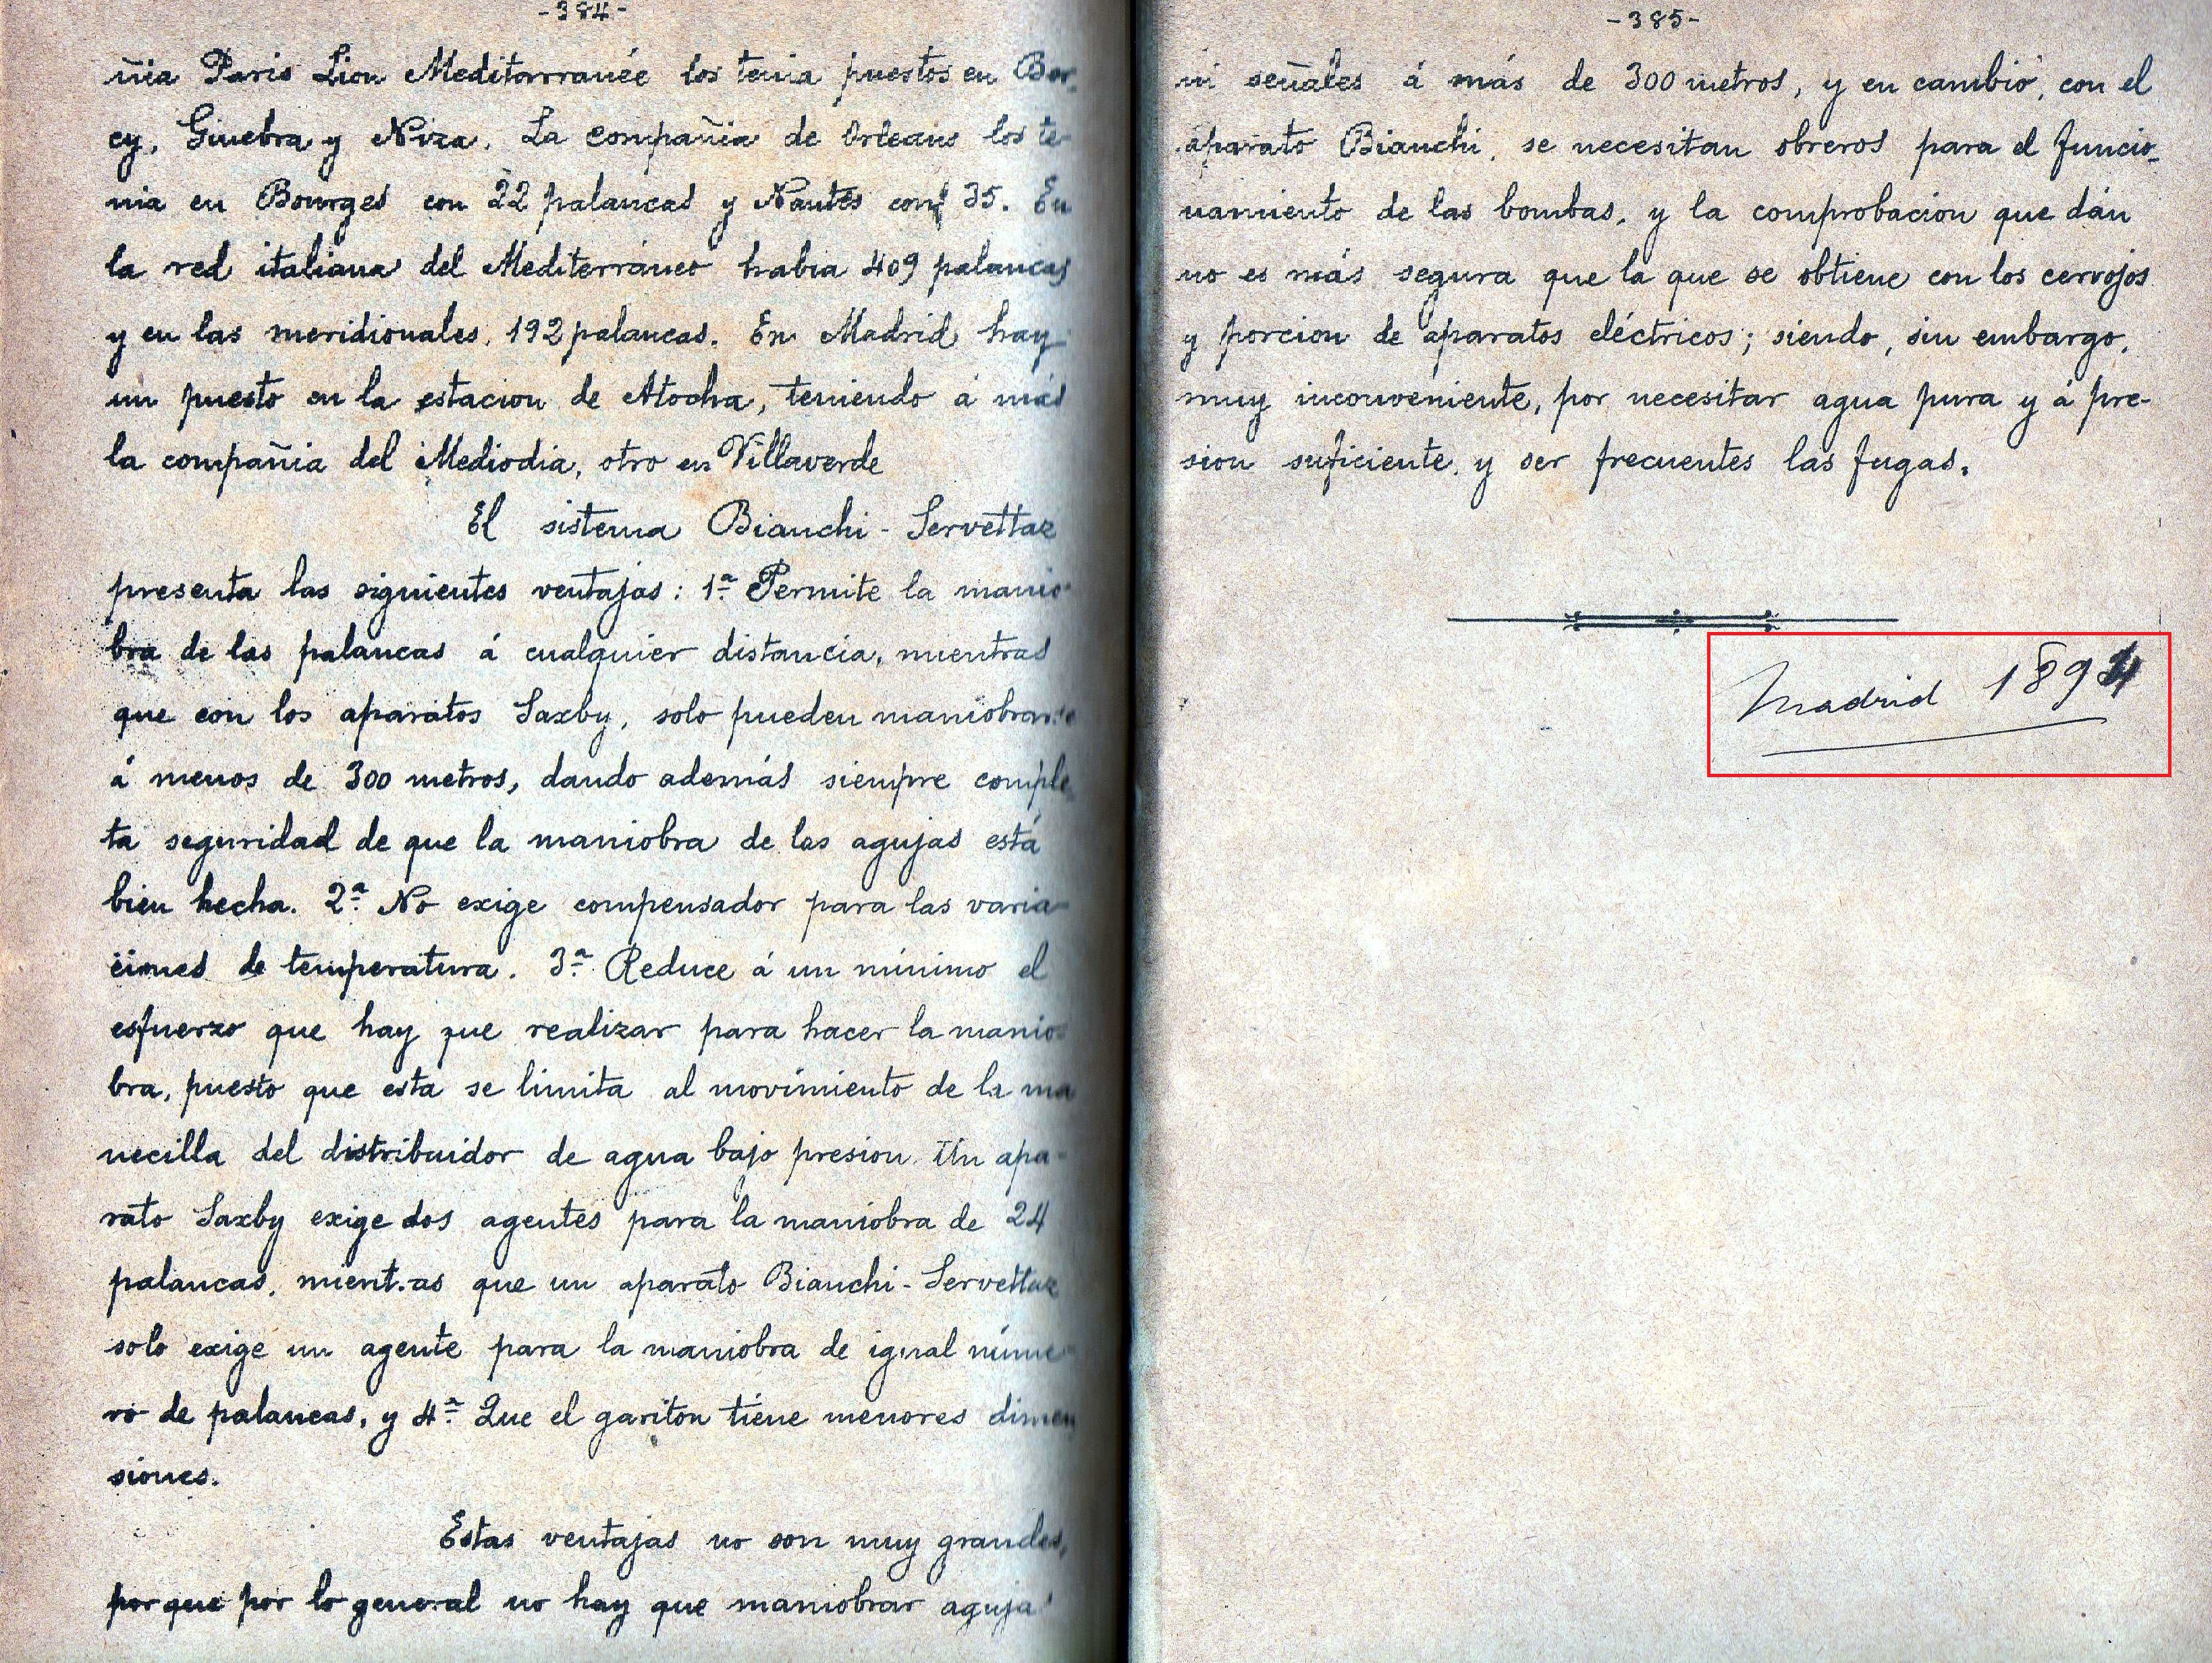 -384-
ñia Paris Lion Mediterranée los tenia puestos en Ber
cy, Ginebra y Niza. La compañia de Orleans los te-
nia en Bourges con 22 palancas y Nantes con 35. En
la red italiana del Mediterráneo habia 409 palancas
y en las meridionales, 192 palancas. En Madrid hay
un puesto en la estacion de Atocha, teniendo á más
la compañia del Mediodia, otro en Villaverde
El sistema Bianchi-Servettaz
presenta las siguientes ventajas: 1ª Permite la manio-
bra de las palancas á cualquier distancia, mientras
que con los aparatos Saxby, solo pueden maniobrarse
á menos de 300 metros, dando además siempre comple
ta seguridad de que la maniobra de las agujas está
bien hecha. 2ª No exige compensador para las varia-
ciones de temperatura. 3ª Reduce á un minimo el
esfuerzo que hay que realizar para hacer la manio-
bra, puesto que esta se limita al movimiento de la ma
necilla del distribuidor de agua bajo presion. Un apa-
rato Saxby exige dos agentes para la maniobra de 24
palancas, mientras que un aparato Bianchi-Servettaz
solo exige un agente para la maniobra de igual núme-
ro de palancas, y 4ª Que el gariton tiene menores dimen
siones.
Estas ventajas no son muy grandes,
porque por lo general no hay que maniobrar agujas
-385-
ni señales á más de 300 metros, y en cambio, con el
aparato Bianchi, se necesitan obreros para el funcio-
namiento de las bombas, y la comprobacion que dán
no es más segura que la que se obtiene con los cerrojos
y porcion de aparatos eléctricos; siendo, sin embargo,
muy inconveniente, por necesitar agua pura y á pre-
sion suficiente, y ser frecuentes las fugas.
Madrid 1894